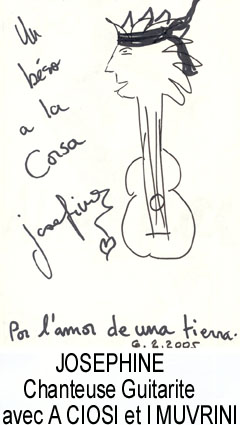 Un
béso
a la
Corsa
josefina
Por l'amor de una tierra.
6.2.2005
JOSEPHINE
Chanteuse Guitarite
avec A CIOSI et I MUVRINI